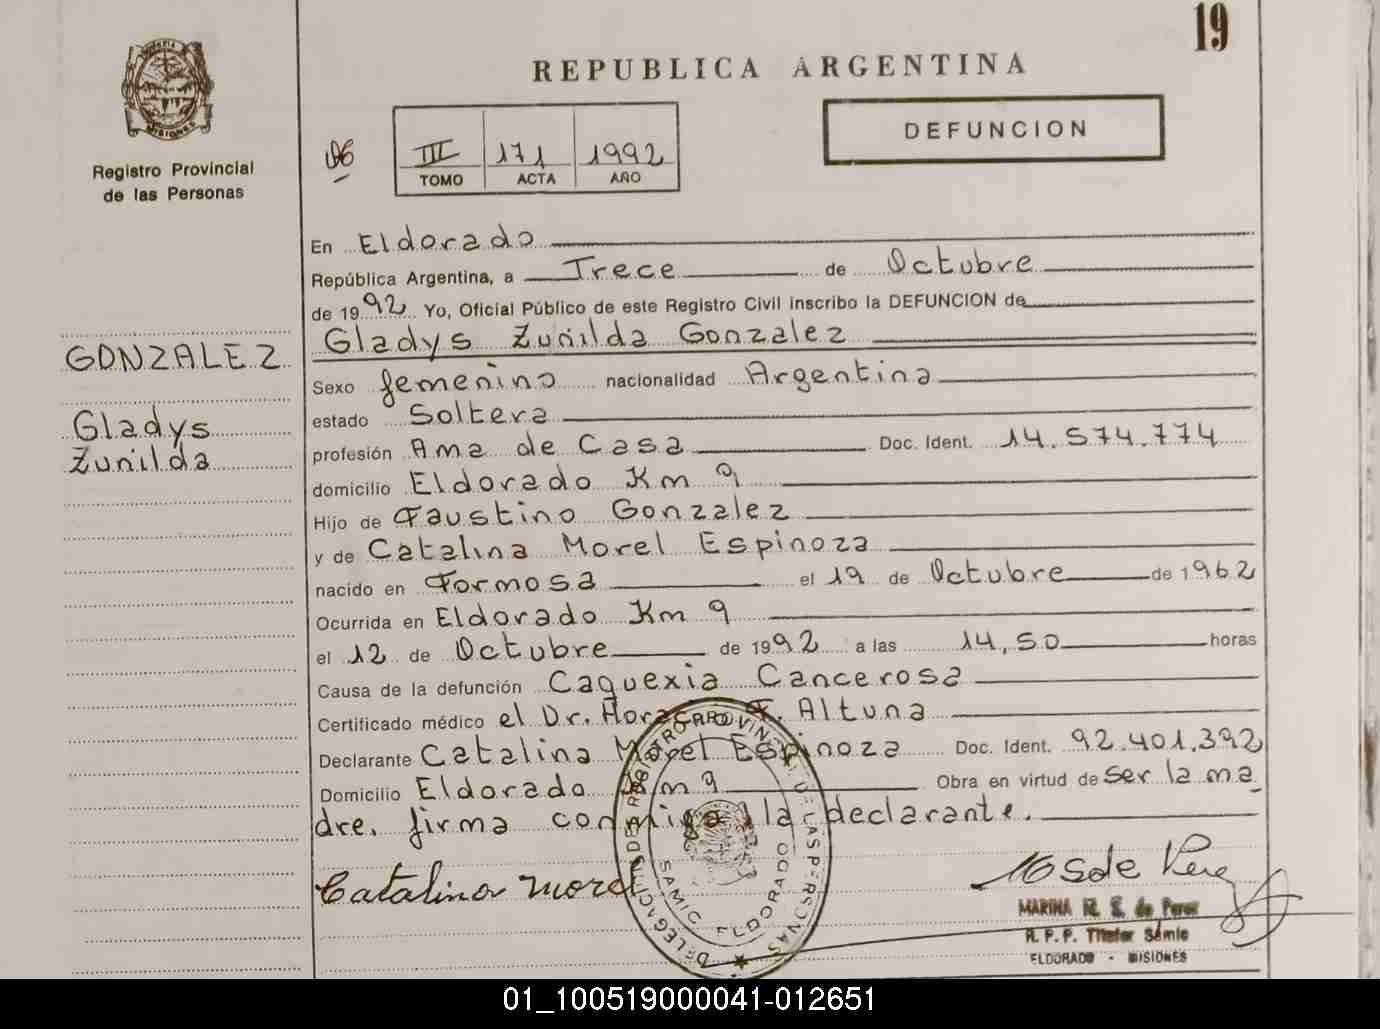 19
REPUBLICA ARGENTINA
DEFUNCION
MISIONES
Registro Provincial
de las Personas
III 171 1992
TOMO ACTA AÑO
En Eldorado
República Argentina, a Trece de Octubre
de 1992 Yo, Oficial Público de este Registro Civil inscribo la DEFUNCION de
Gladys Zunilda Gonzalez
GONZALEZ
Gladys
Zunilda
Sexo femenino nacionalidad Argentina
estado Soltera
profesión Ama de Casa Doc. Ident. 14.574.774
domicilio Eldorado Km 9
Hijo de Faustino Gonzalez
y de Catalina Morel Espinoza
nacido en Formosa el 19 de Octubre de 1962
Ocurrida en Eldorado Km 9
el 12 de Octubre de 1992 a las 14,50 horas
Causa de la defunción Caquexia Cancerosa
Certificado médico el Dr. Horacio F. Altuna
Declarante Catalina Morel Espinoza Doc. Ident. 92.401.392
Domicilio Eldorado Km 9 Obra en virtud de ser la ma
dre, firma conmigo la declarante.
Catalina Morel
DELEGACION DE REGISTRO PROVINCIAL DE LAS PERSONAS
SAMIC ELDORADO
MSdePerez
MARINA R. S. de Perez
R. P. P. Titular Samic
ELDORADO - MISIONES
01_100519000041-012651